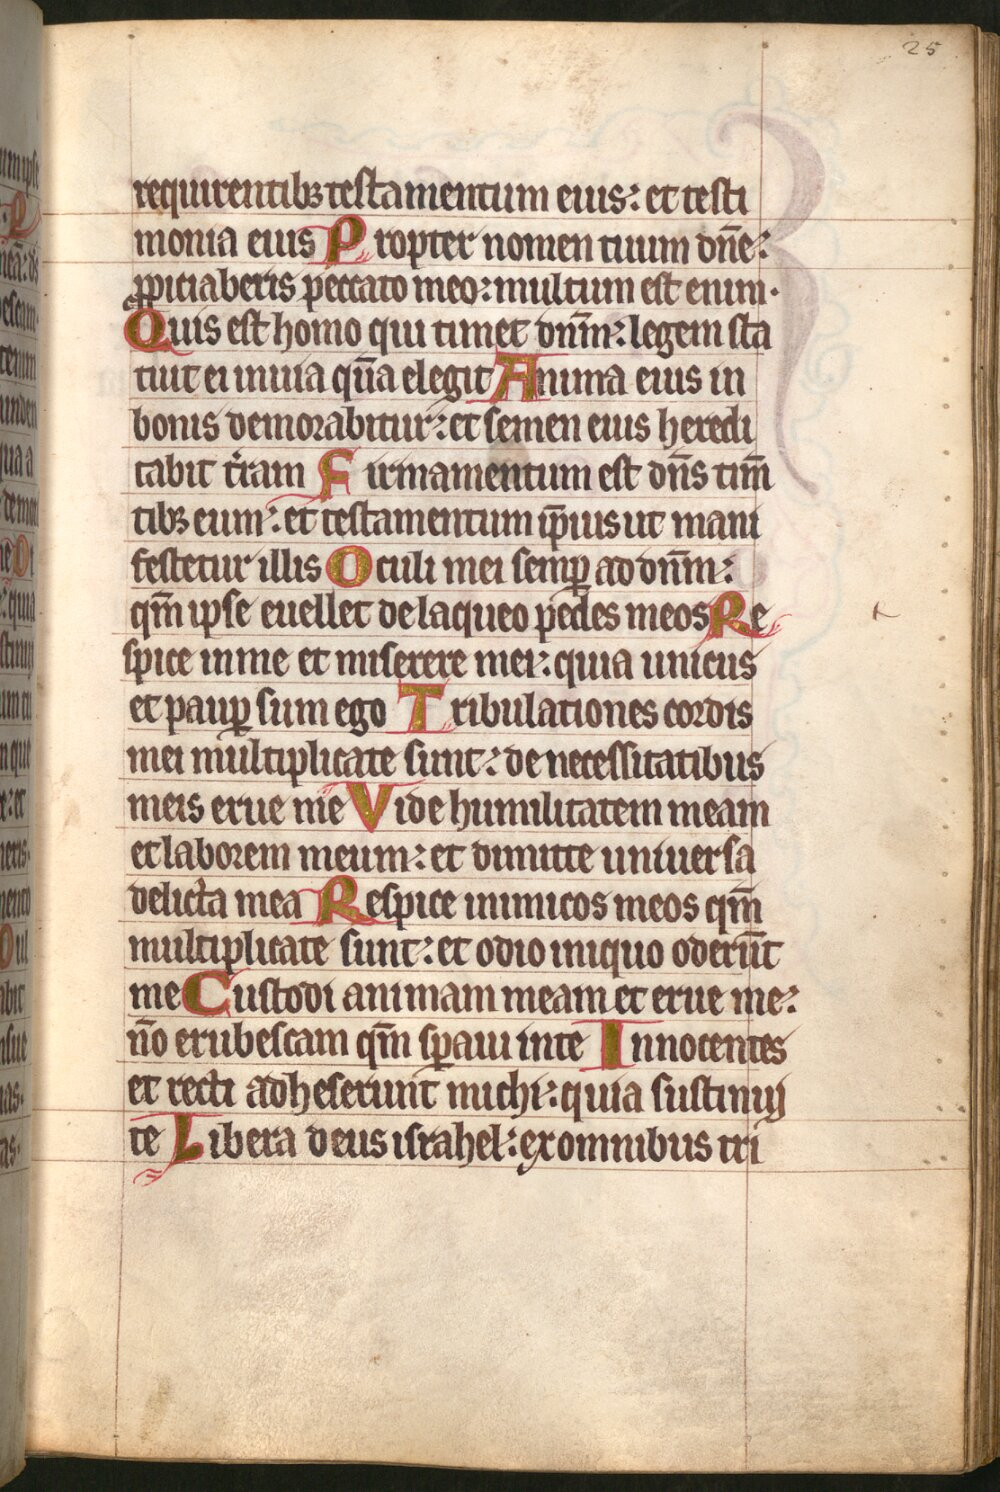 25
requirentibꝫ testamentum eius: et testi
monia eius Propter nomen tuum dn̄e:
ꝓpiciaberis peccato meo: multum est enim.
Quis est homo qui timet dn̄m: legem sta
tuit ei in uia qua̅ elegit Anima eius in
bonis demorabitur: et semen eius heredi
tabit t̄ram Firmamentum est dn̄s tim̄
tibꝫ eum: et testamentum ip̄ius ut mani
festetur illis Oculi mei semꝑ ad dn̄m:
qm̄ ipse euellet de laqueo pedes meos Re
spice in me et miserere mei: quia unicus
et pauꝑ sum ego Tribulationes cordis
mei multiplicate sunt: de necessitatibus
meis erue me Vide humilitatem meam
et laborem meum: et dimitte uniuersa
delicta mea Respice inimicos meos qm̄
multiplicate sunt: et odio iniquo oderun̄t
me Custodi animam meam et erue me:
no̅ erubescam qm̄ sꝑaui in te Innocentes
et recti adheserunt michi: quia sustinuj
te Libera deus israhel: ex omnibus tri